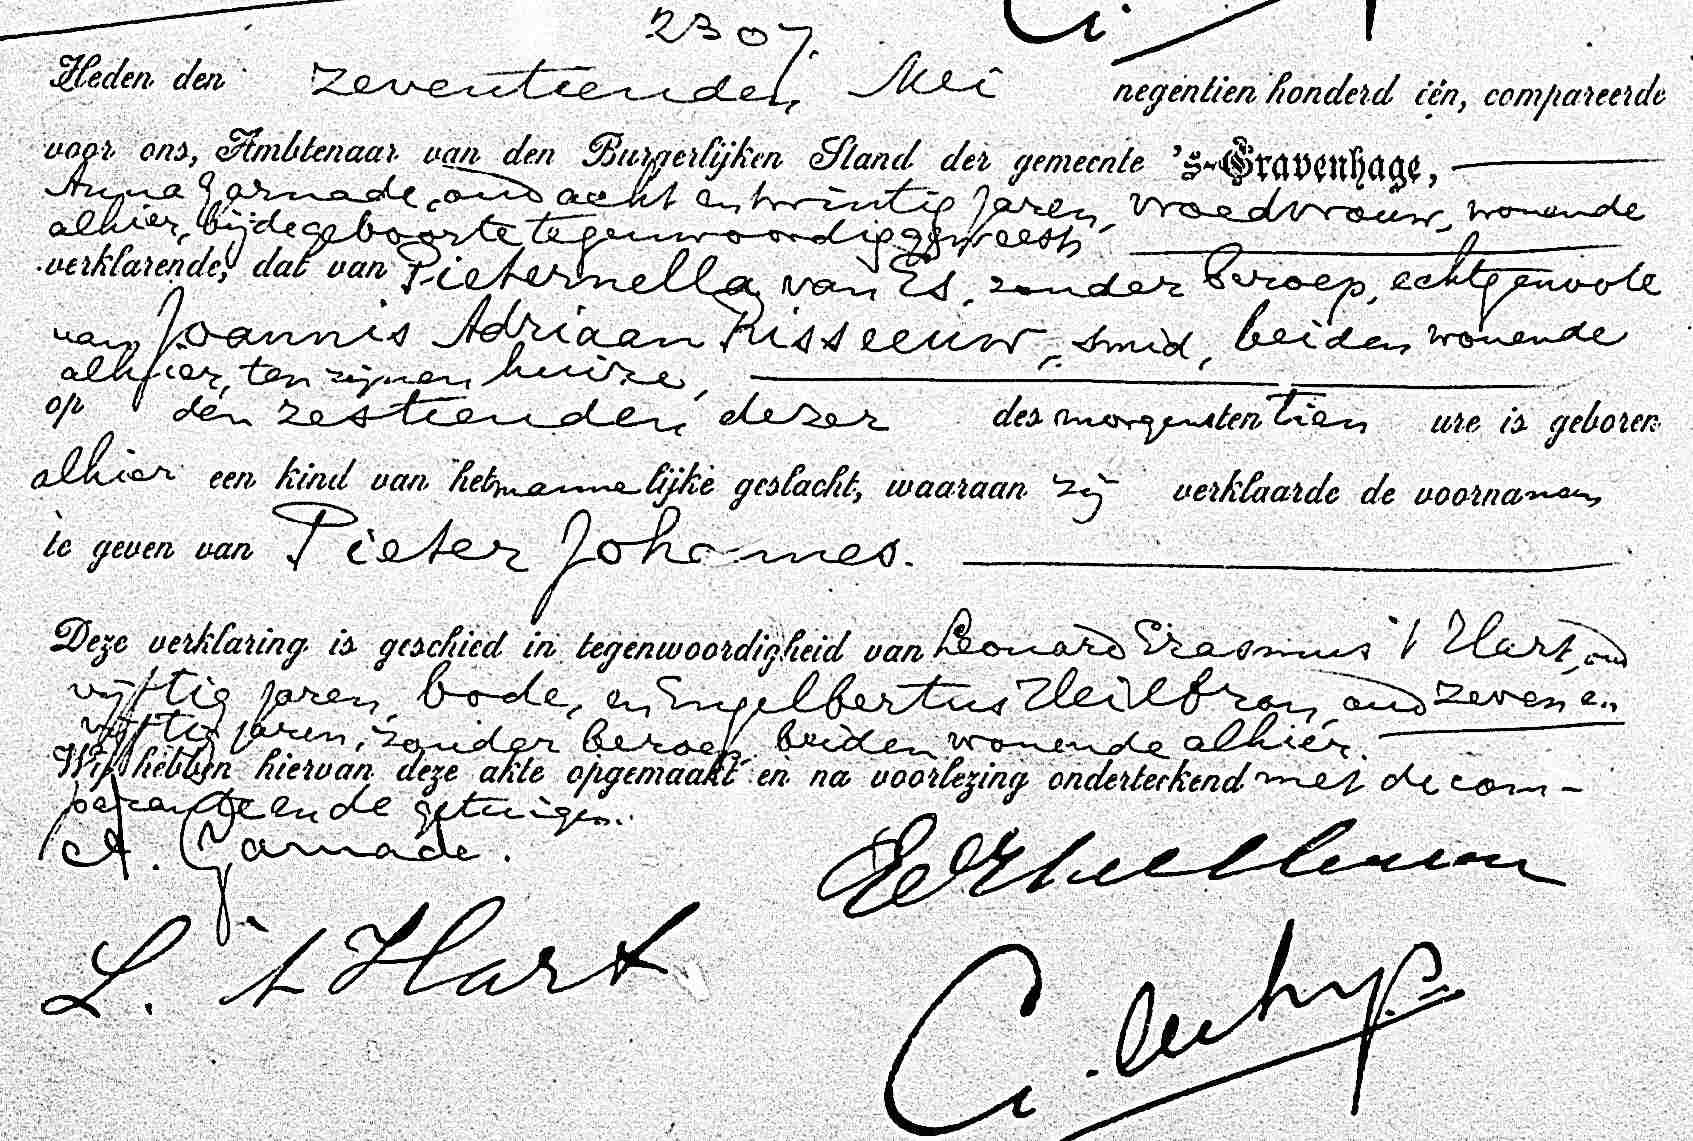 2307.
Heden den zeventienden Mei negentien honderd één, compareerde
voor ons, Ambtenaar van den Burgerlijken Stand der gemeente 's-Gravenhage,
Anna Garnade, oud acht en twintig jaren, vroedvrouw, wonende
alhier, bij de geboorte tegenwoordig geweest,
verklarende, dat van Pieternella van Es, zonder beroep, echtgenoote
van Joannis Adriaan Risseeuw, smid, beiden wonende
alhier, ten zijnen huize,
op den zestienden dezer des morgens ten tien ure is geboren
alhier een kind van het mannelijke geslacht, waaraan zij verklaarde de voornamen
te geven van Pieter Johannes.
Deze verklaring is geschied in tegenwoordigheid van Leonard Erasmus 't Hart, oud
vijftig jaren, bode, en Engelbertus Heilbron, oud zeven en
vijftig jaren, zonder beroep, beiden wonende alhier.
Wij hebben hiervan deze akte opgemaakt en na voorlezing onderteekend met de com-
parante en de getuigen.
A. Garnade.
L. 't Hart